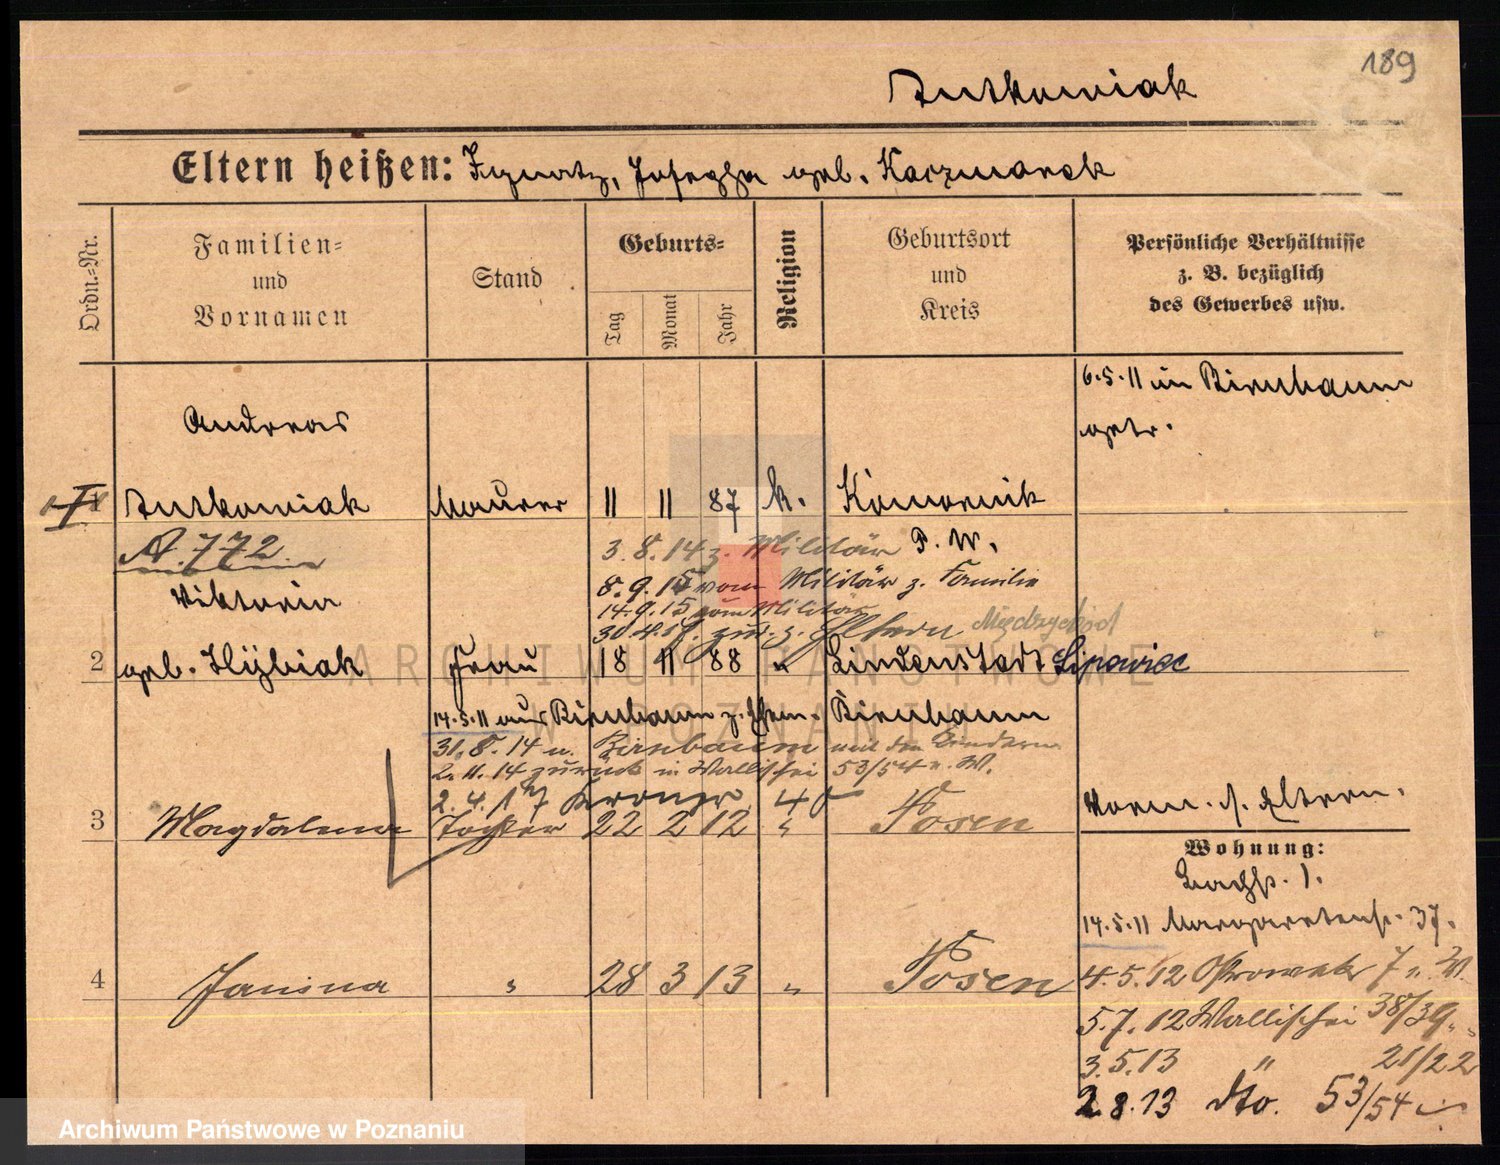 189
Dutkowiak
Eltern heißen: Ignatz, Josepha geb. Kaczmarek
Ordn.-Nr.
Familien-
und
Vornamen
Stand
Geburts-
Tag
Monat
Jahr
Religion
Geburtsort
und
Kreis
Persönliche Verhältnisse
z. B. bezüglich
des Gewerbes usw.
6.5.11 in Birnbaum
getr.
Andreas
Dutkowiak Maurer 11 11 87 k. Komornik
A. 772
3.8.14 z. Militär P. W.
8.9.15 vom Militär z. Familie
14.9.15 vom Militär
Viktoria
Międzychód
2 geb. Hybiak Frau 18 11 88 " Lindenstadt Lipowiec
14.5.11 aus Birnbaum z. Ehem. Birnbaum
31.8.14 n. Birnbaum mit den Kindern
2.11.14 zurück in Wallischei 53/54 b. W.
2.4.17
3 Magdalena Tochter 22 2 12 " Posen
Vorm. s. Eltern.
Wohnung:
14.5.11 Margaretenstr. 37.
4 Janina " 28 3 13 " Posen
4.5.12 Ostrowek 7 b. W.
5.7.12 Wallischei 38/39 " "
3.5.13 " 21/22
2.8.13 dto. 53/54
ARCHIWUM PAŃSTWOWE
W POZNANIU
Archiwum Państwowe w Poznaniu